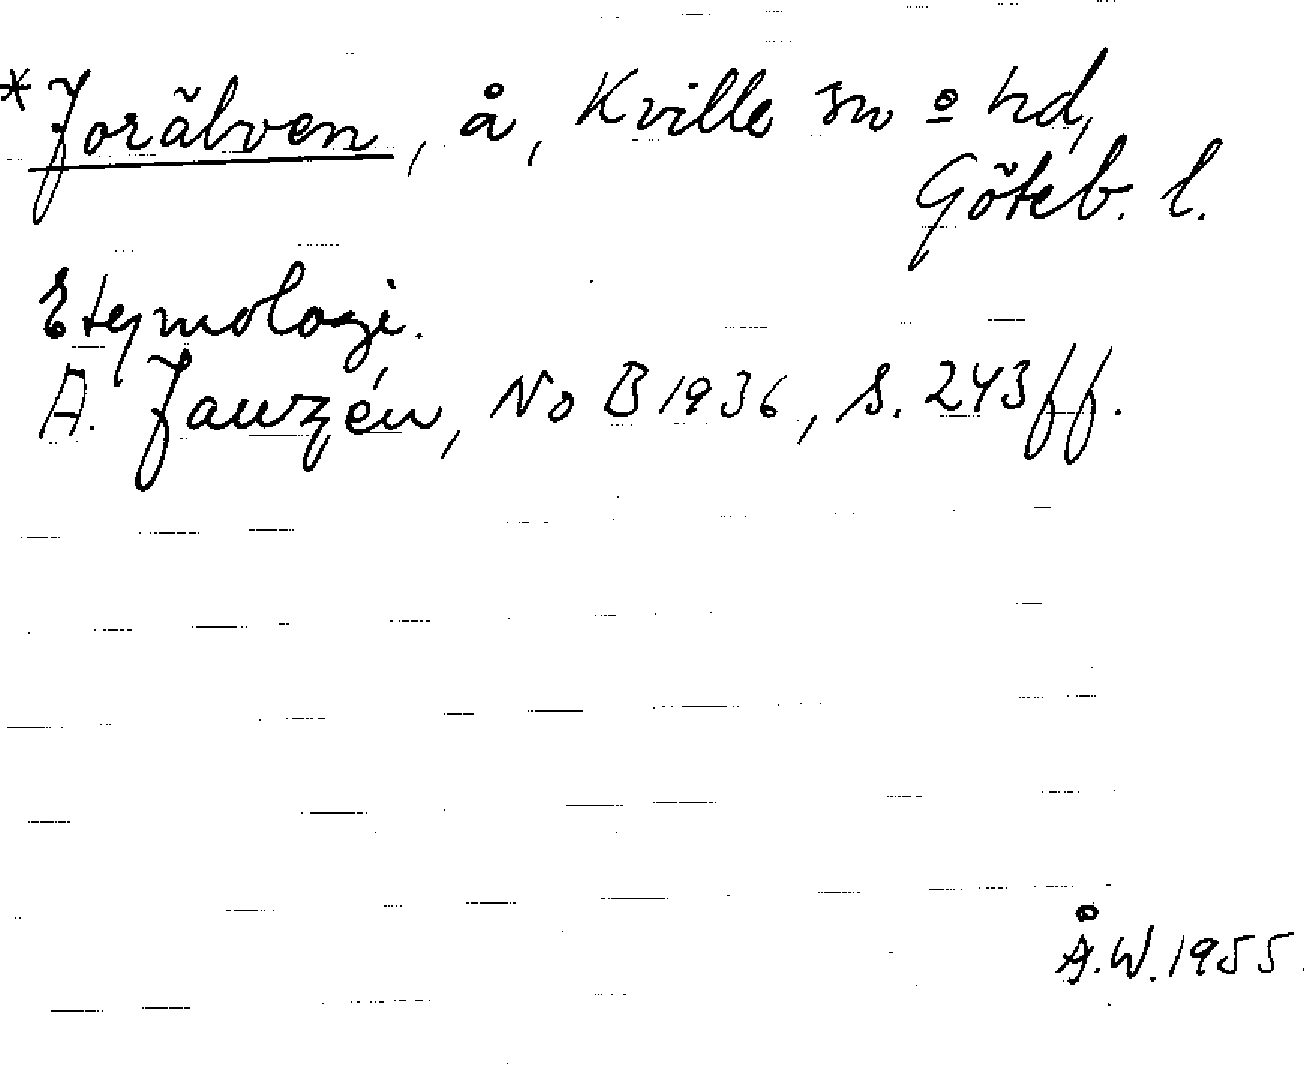 *Jorälven, å, Kville sn o hd,
Göteb. l.
Etymologi.
A. Janzén, NoB 1936, s. 243 ff.
Å.W. 1955.